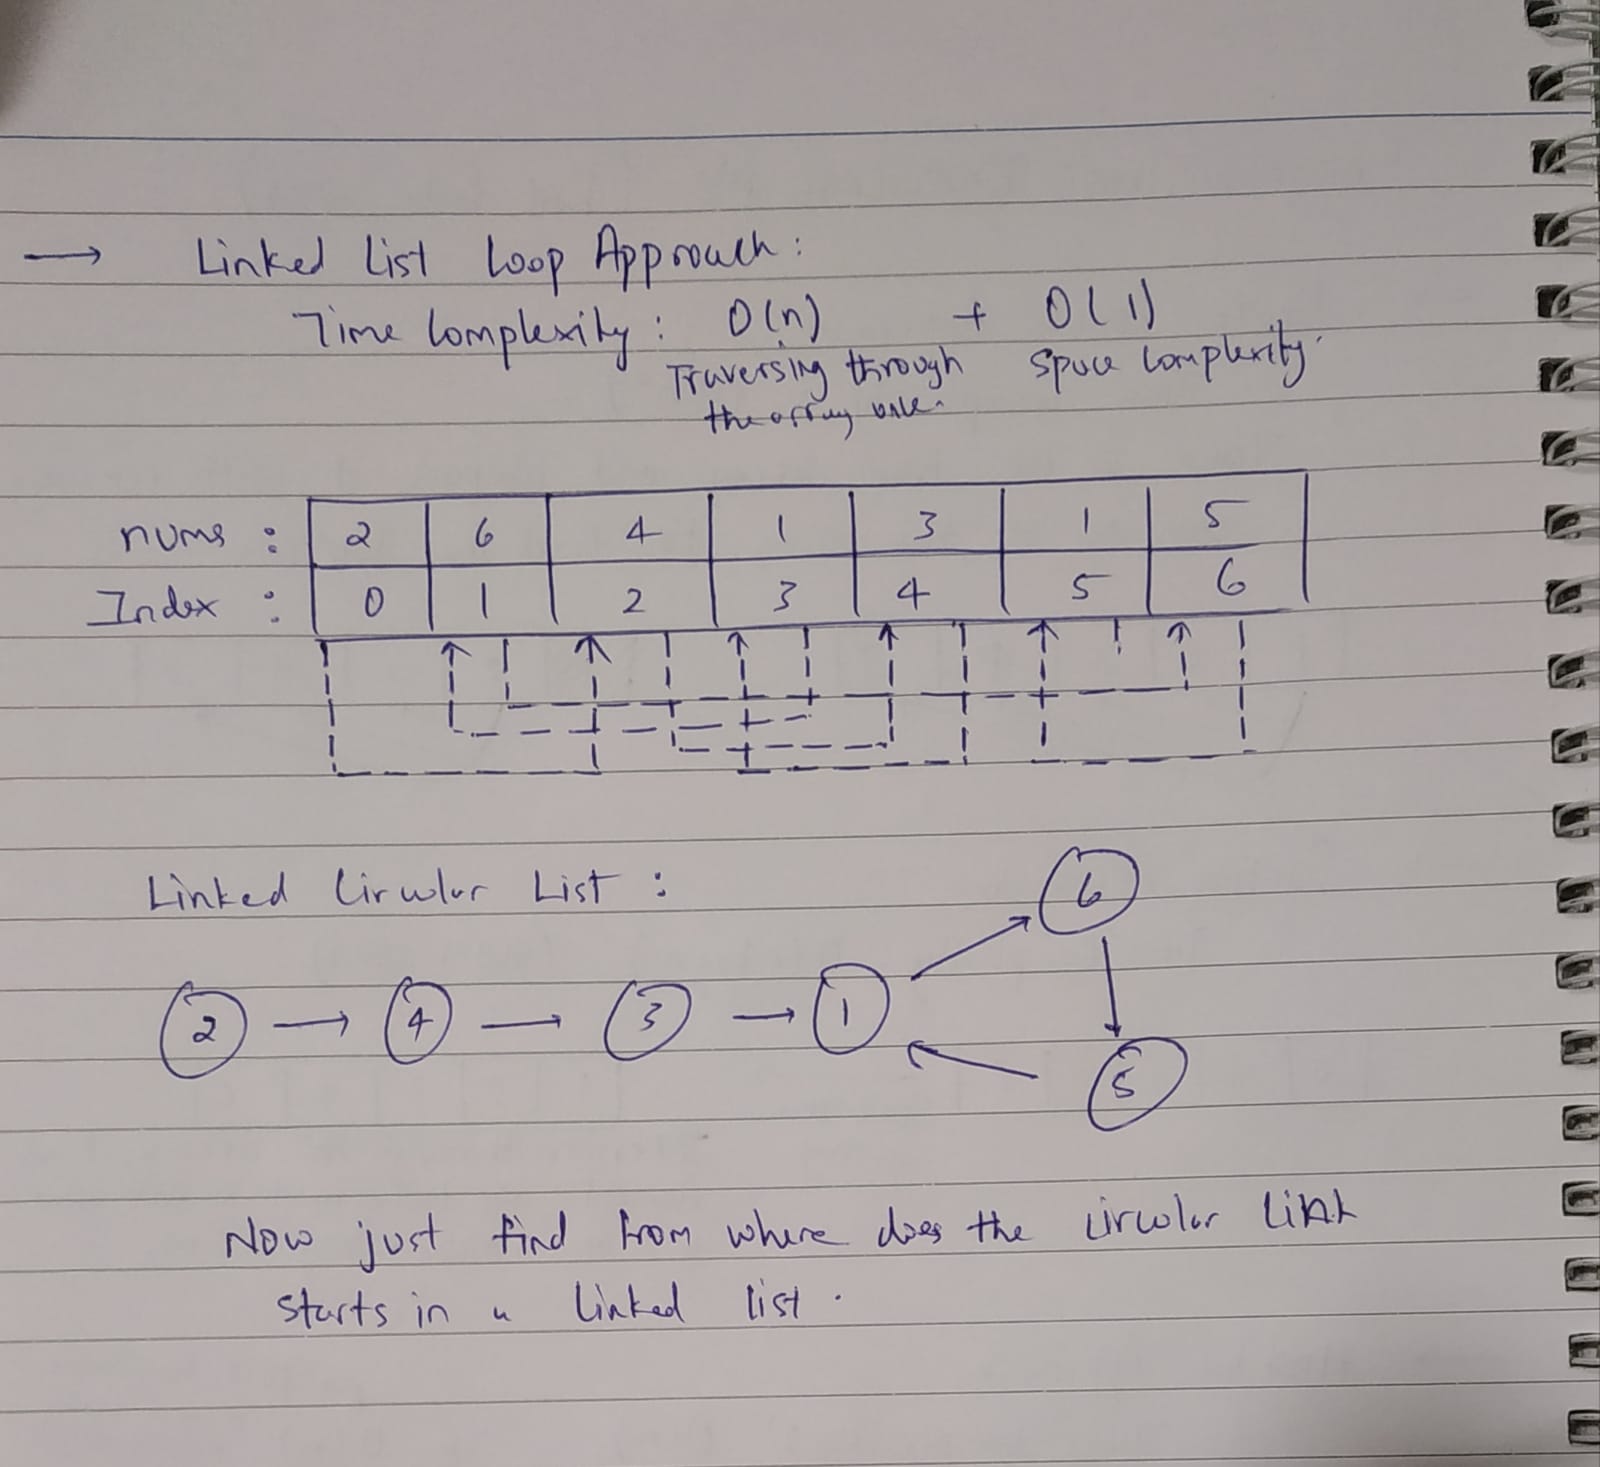 → Linked List Loop Approach:
Time Complexity: O(n) + O(1)
Traversing through Space Complexity.
the array once.
nums : 2 6 4 1 3 1 5
Index : 0 1 2 3 4 5 6
Linked Circular List :
6
2 → 4 → 3 → 1
5
Now just find from where does the circular link
starts in a linked list .